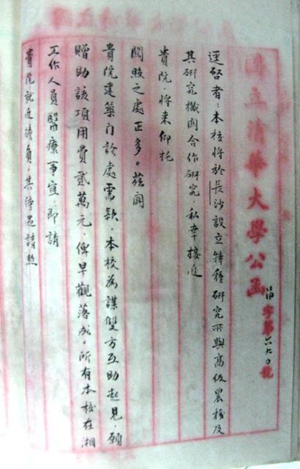 國立清華大學公函
字第六九〇號
逕啓者：本校將於長沙設立特種研究所與高級農校及
其研究機関合作研究，私幸接近
貴院，將來仰托
関照之處正多。茲聞
貴院建築门診處需款，本校為謀雙方互助起見，願
贈助該項用費貳萬元，俾早觀落成，所有本校在湘
工作人員醫療事宜，即請
貴院就近